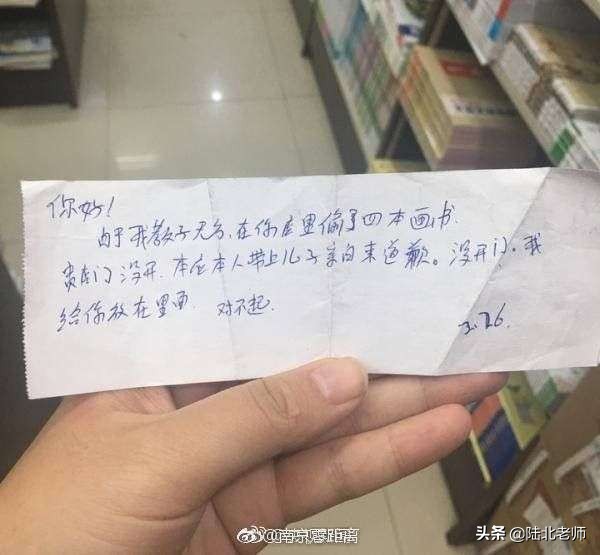 你好！
由于我教子无方，在你店里偷了四本画书.
贵店门没开.本应本人带上儿子亲自来道歉。没开门.我
给你放在里面.对不起.
3.26.
@南京零距离
头条 @陆北老师